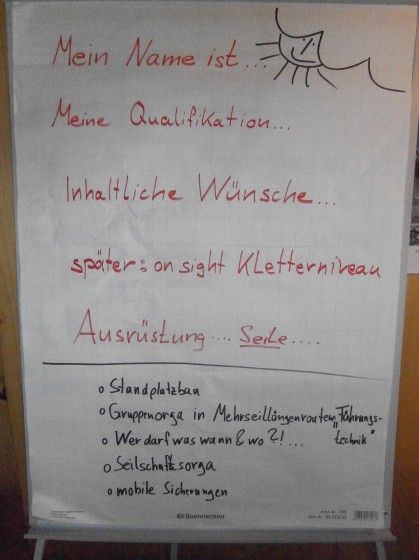 Mein Name ist...
Meine Qualifikation...
Inhaltliche Wünsche...
später: on sight Kletterniveau
Ausrüstung.... Seile....
o Standplatzbau
o Gruppenorga in Mehrseillängenrouten „Führungs-
technik"
o Wer darf was wann & wo?!...
o Seilschaftsorga
o mobile Sicherungen
Soennecken